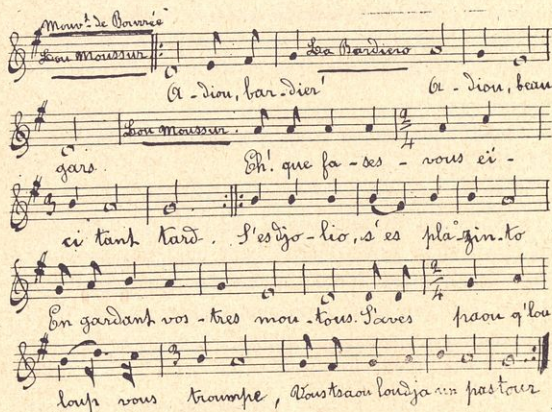 Mouvt de Bourrée
Lou Moussur La Bardiero
A - diou, bar - dier' A - diou, beau
Lou Moussur. 2/4
gars. Eh! que fa - ses - vous ei -
3
ci tant tard. S'es djo - lio, s'es pla - zin - to
2/4
En gardant vos - tres mou - tous. S'aves paou q'lou
3
loup vous troumpe, Vous tsaou loudja un pastour